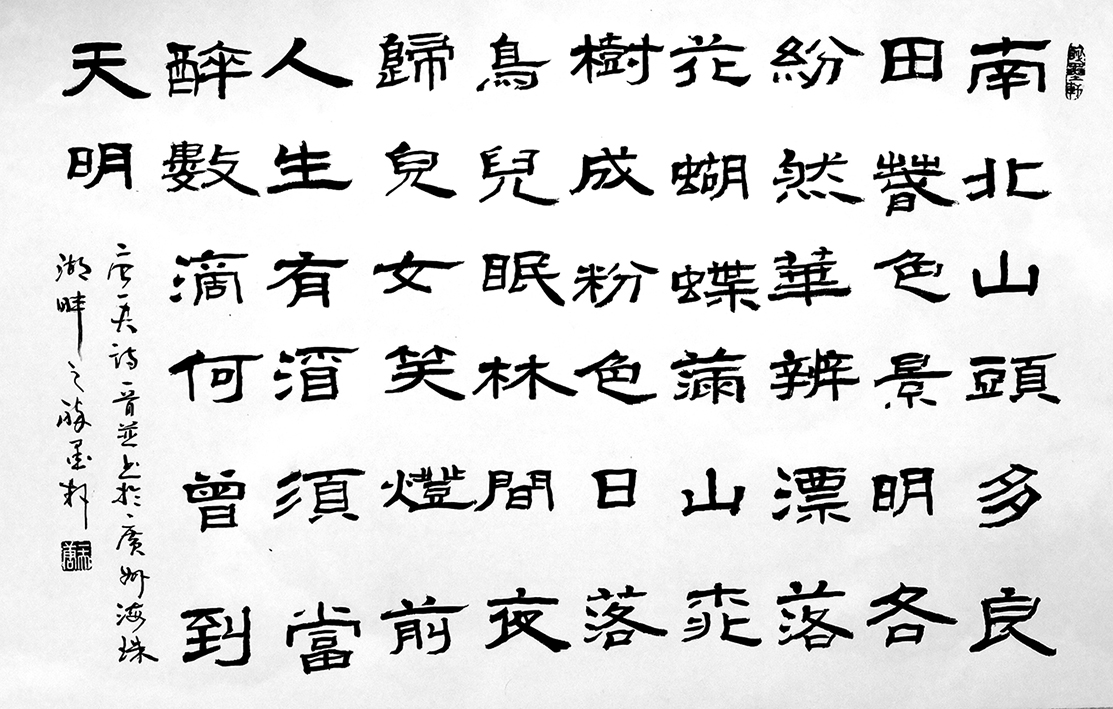 南北山頭多良
田萅色景明各
紛然華辨漂落
花蝴蝶滿山飛
樹成粉色日落
鳥兒眠林間夜
歸兒女笑燈前
人生有酒須當
醉數滴何曾到
天明
詩一首並书於廣州海珠
湖畔之墨軒